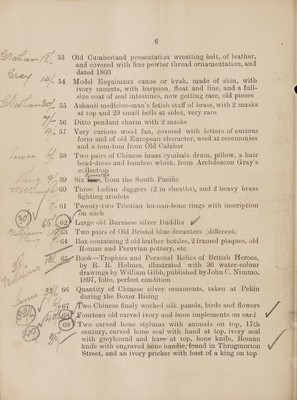 6
Graham 18/. 53 Old Cumberland presentation wrestling belt, of leather,
and covered with fine pewter thread ornamentation, and
dated 1803
Gray 14/- 54 Model Esquimaux canoe or kyak, made of skin, with
ivory mounts, with harpoon, float and line, and a full-
size coat of seal intestines, now getting rare, old pieces
55 Ashanti medicine-man's fetish staff of brass, with 2 masks
at top and 29 small bells at sides, very rare
7/- 56 Ditto pendant charm with 2 masks
57 Very curious wood fan, covered with letters of curious
form and of old European character, used at ceremonies
and a tom-tom from Old Calabar
58 Two pairs of Chinese brass cymbals, drum, pillow, a hair
head-dress and bamboo whisk, from Archdeacon Gray's
collection
59 Six from the South Pacific
60 Three Indian daggers (2 in sheaths), and 2 heavy brass
fighting armlets
61 Twenty-two Tibetian human-bone rings with inscription
on each
30/ 65/ 62 Large old Burmese silver Buddha ✓
63 Two pairs of Old Bristol blue decanters (different)
64 Box containing 3 old leather bottles, 2 framed plaques, old
Roman and Peruvian pottery, etc.
65 Book—Trophies and Personal Relics of British Heroes,
by R. R. Holmes, illustrated with 36 water-colour
drawings by William Gibb, published by John C. Nimmo,
1897, folio, perfect condition
66 Quantity of Chinese silver ornaments, taken at Pekin
during the Boxer Rising
67 Two Chinese finely worked silk panels, birds and flowers
68 Fourteen old carved ivory and bone implements on card ✓
69 Two carved bone stylums with animals on top, 17th
century, carved bone seal with hand at top, ivory seal
with greyhound and hare at top, bone knife, Roman
knife with engraved bone handle, found in Throgmorton
Street, and an ivory pricker with bust of a king on top